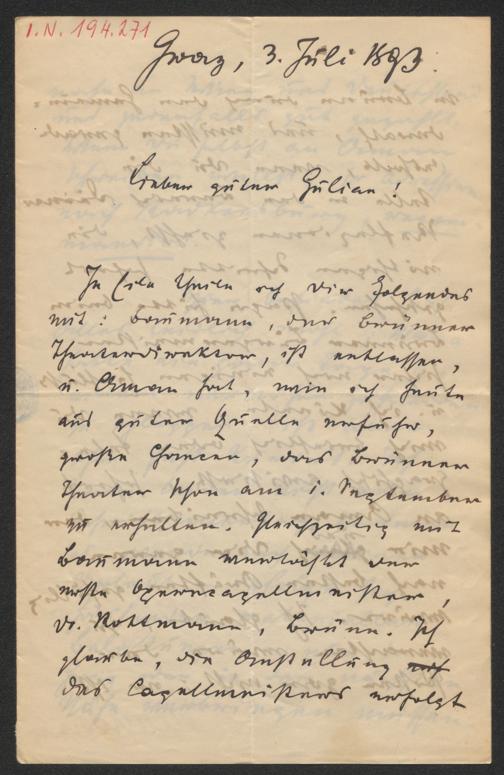 I.N. 194.271
Graz, 3. Juli 1893.
Lieber guter Gülian!
In Eile theile ich Dir Folgendes
mit: Baumann, der Brünner
Theaterdirektor, ist entlassen,
u. Aman hat, wie ich heute
aus guter Quelle erfuhr,
große Chancen, das Brünner
Theater schon am 1. September
zu erhalten. Gleichzeitig mit
Baumann verläßt der
erste Operncapellmeister,
Dr. Rottmann, Brünn. Ich
glaube, die Anstellung
des Capellmeisters erfolgt